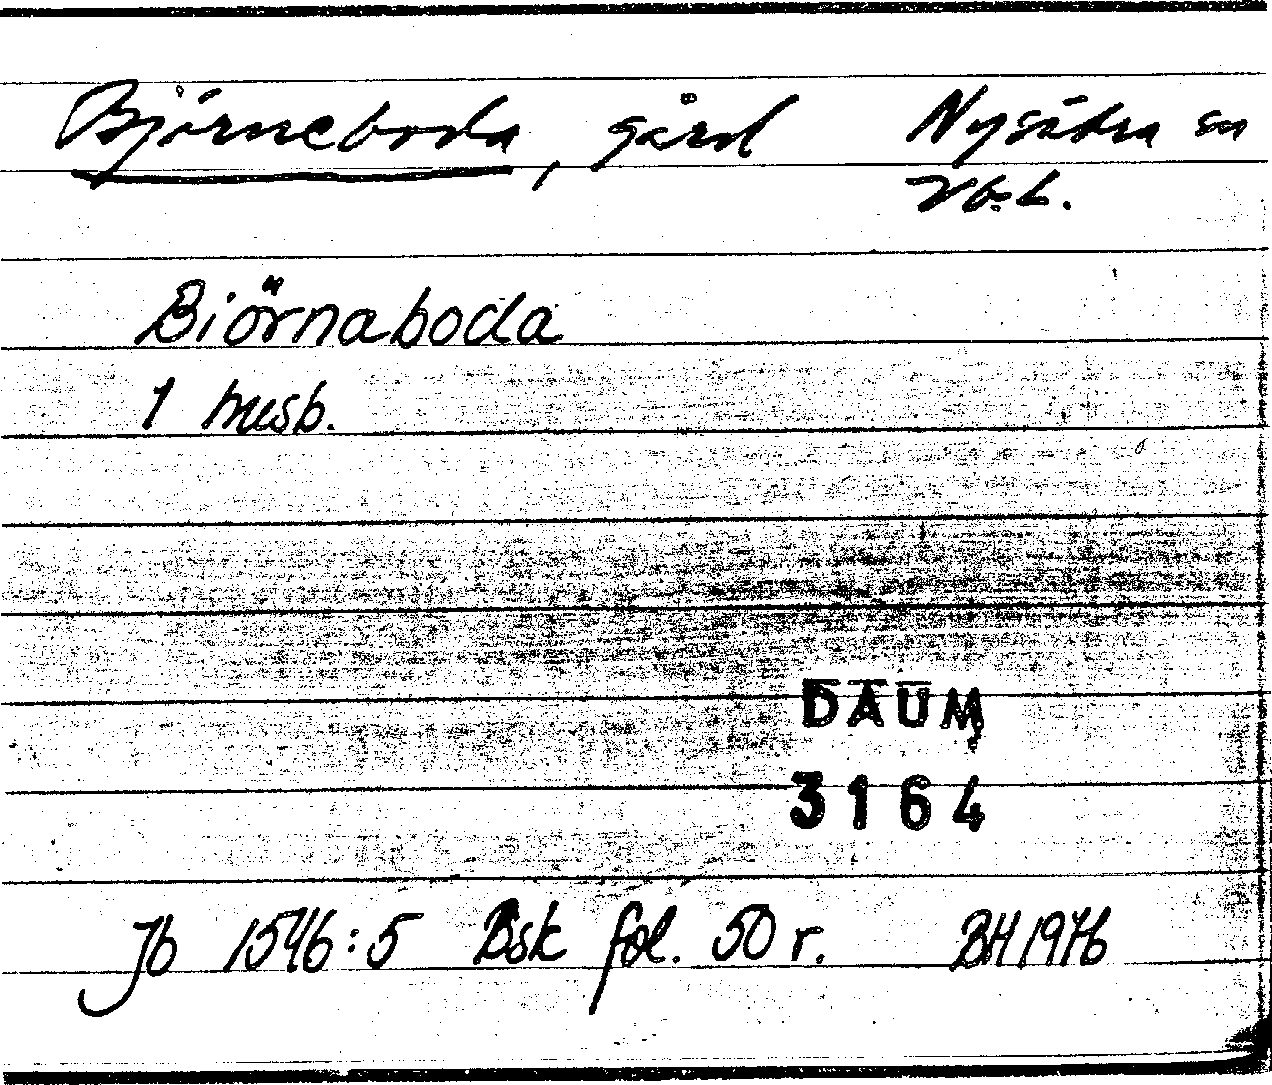 Björneboda, gård Nysätra sn
Vb.L.
Biörnaboda
1 husb.
DAUM
3164
Jb 1546:5 Bsk fol. 50 r. BH 1976